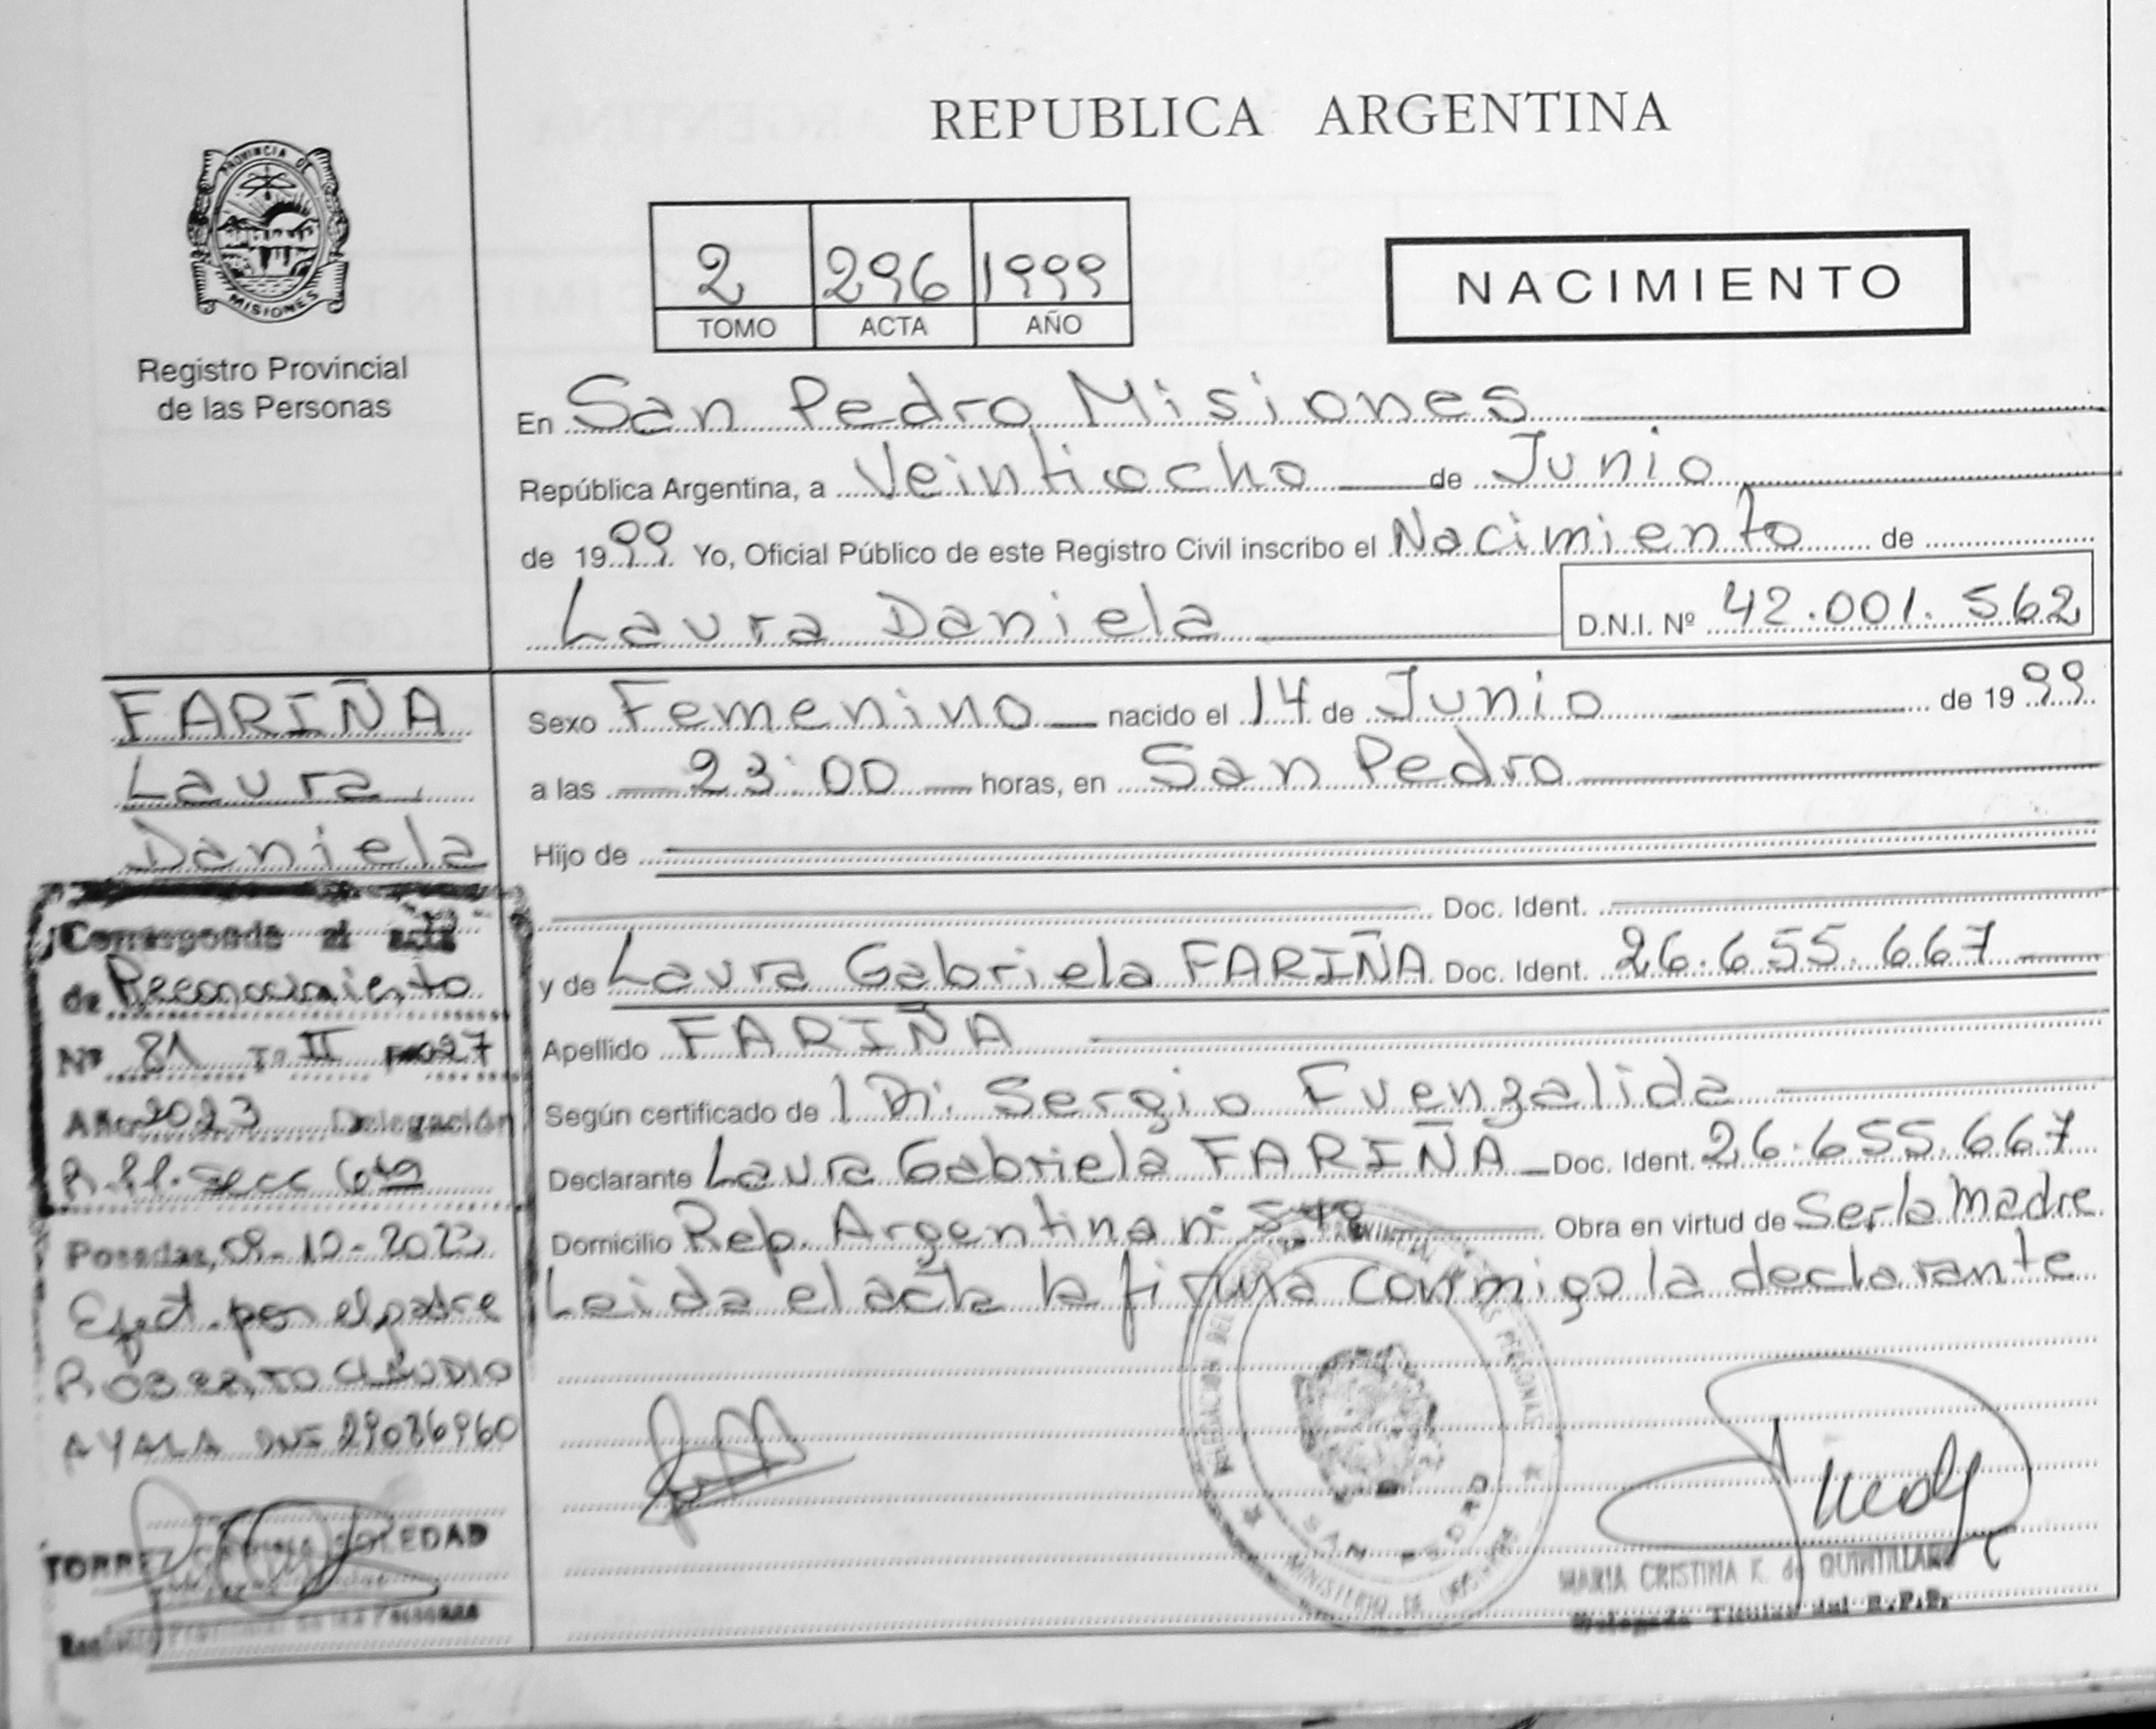 REPUBLICA ARGENTINA
PROVINCIA DE
MISIONES
Registro Provincial
de las Personas
2 296 1999
TOMO ACTA AÑO
NACIMIENTO
En San Pedro Misiones
República Argentina, a Veintiocho de Junio
de 1999 Yo, Oficial Público de este Registro Civil inscribo el Nacimiento de
Laura Daniela D.N.I. Nº 42.001.562
FARIÑA
Laura
Daniela
Sexo Femenino nacido el 14 de Junio de 1999
a las 23:00 horas, en San Pedro
Hijo de
Doc. Ident.
y de Laura Gabriela FARIÑA Doc. Ident. 26.655.667
Apellido FARIÑA
Según certificado de Sergio Fuenzalida
Declarante Laura Gabriela FARIÑA Doc. Ident. 26.655.667
Domicilio Rep. Argentina nº Obra en virtud de Ser la Madre
Leida el acta la firma conmigo la declarante
Corresponde al acta
de Reconocimiento
Nº 81 Tº II
Año 2023 Delegación
Secc 6ta
Posadas, 09-10-2023
Efect. por el padre
ROBERTO CLAUDIO
AYALA DNI 29086960
TORREZ SOLEDAD
Registro Provincial de las Personas
SAN PEDRO
MINISTERIO DE GOBIERNO
MARIA CRISTINA K. de QUINTILLAN
Delegada Titular del R.P.P.